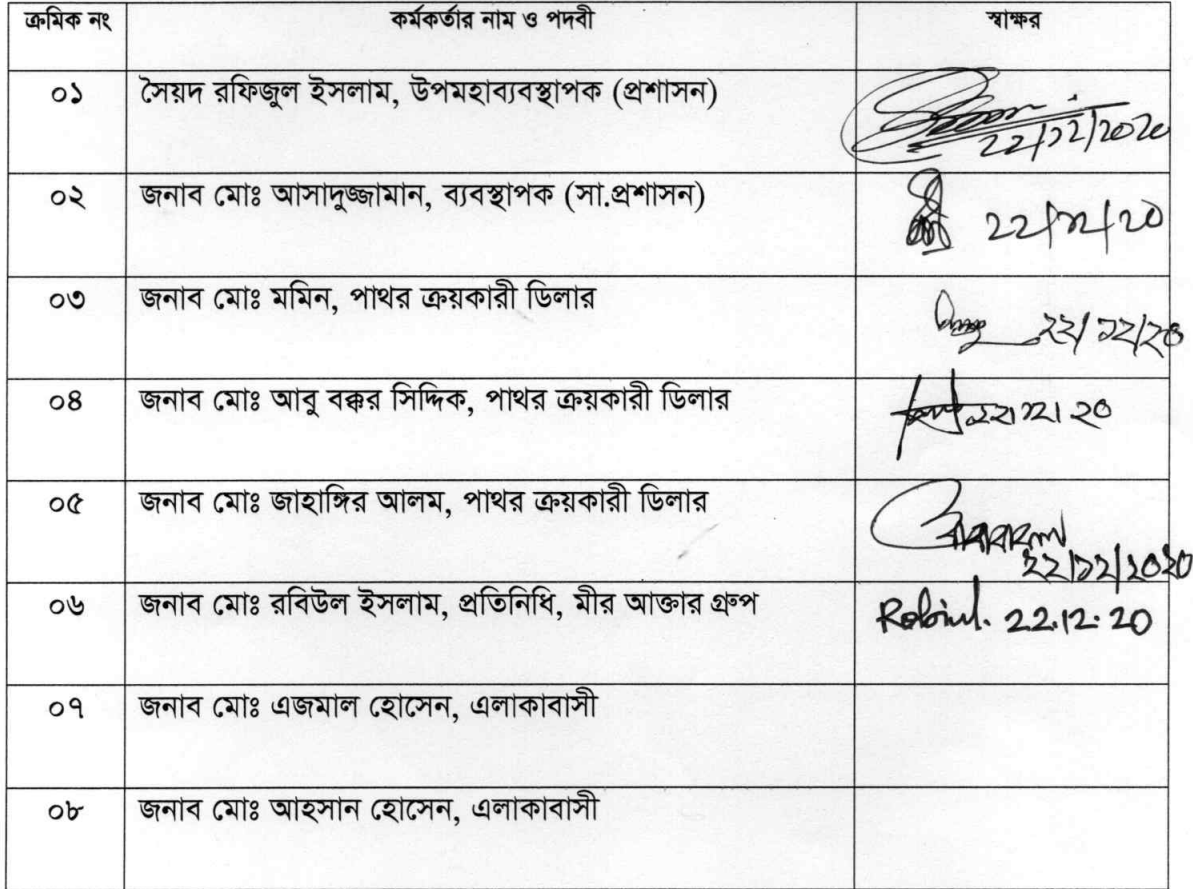 ক্রমিক নং কর্মকর্তার নাম ও পদবী স্বাক্ষর
০১ সৈয়দ রফিজুল ইসলাম, উপমহাব্যবস্থাপক (প্রশাসন)
22/12/2020
০২ জনাব মোঃ আসাদুজ্জামান, ব্যবস্থাপক (সা.প্রশাসন)
22/12/20
০৩ জনাব মোঃ মমিন, পাথর ক্রয়কারী ডিলার
২২/১২/২০
০৪ জনাব মোঃ আবু বক্কর সিদ্দিক, পাথর ক্রয়কারী ডিলার
২২/১২/২০
০৫ জনাব মোঃ জাহাঙ্গির আলম, পাথর ক্রয়কারী ডিলার
২২/১২/২০২০
০৬ জনাব মোঃ রবিউল ইসলাম, প্রতিনিধি, মীর আক্তার গ্রুপ
Robiul. 22.12.20
০৭ জনাব মোঃ এজমাল হোসেন, এলাকাবাসী
০৮ জনাব মোঃ আহসান হোসেন, এলাকাবাসী